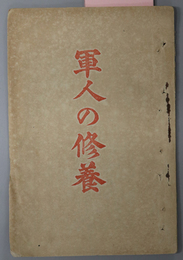 軍人の修養